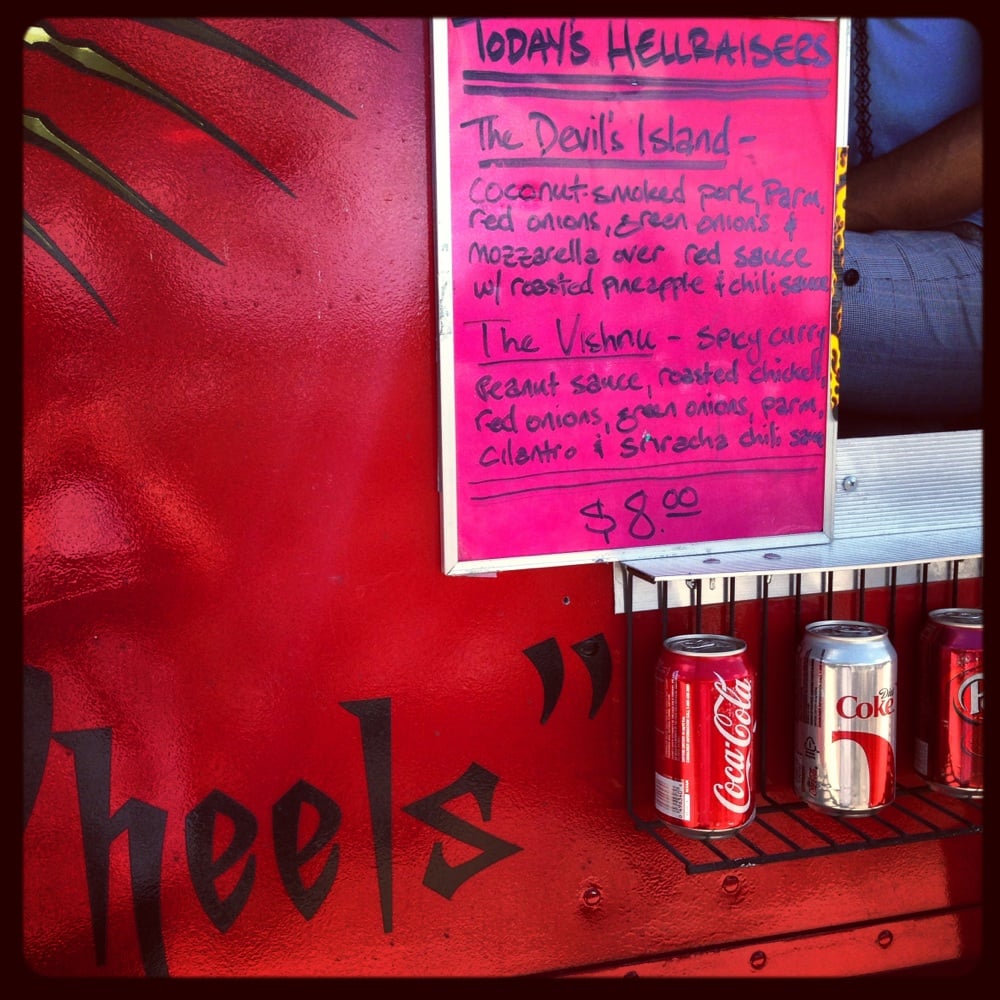 TODAY'S HELLRAISERS
The Devil's Island -
coconut-smoked pork, Parm,
red onions, green onions &
mozzarella over red sauce
w/ roasted pineapple & chili sauce
The Vishnu - spicy curry
Peanut sauce, roasted chicken,
red onions, green onions, parm,
cilantro & sriracha chili sauce
$8.00
heels"
Coca-Cola
Diet
Coke